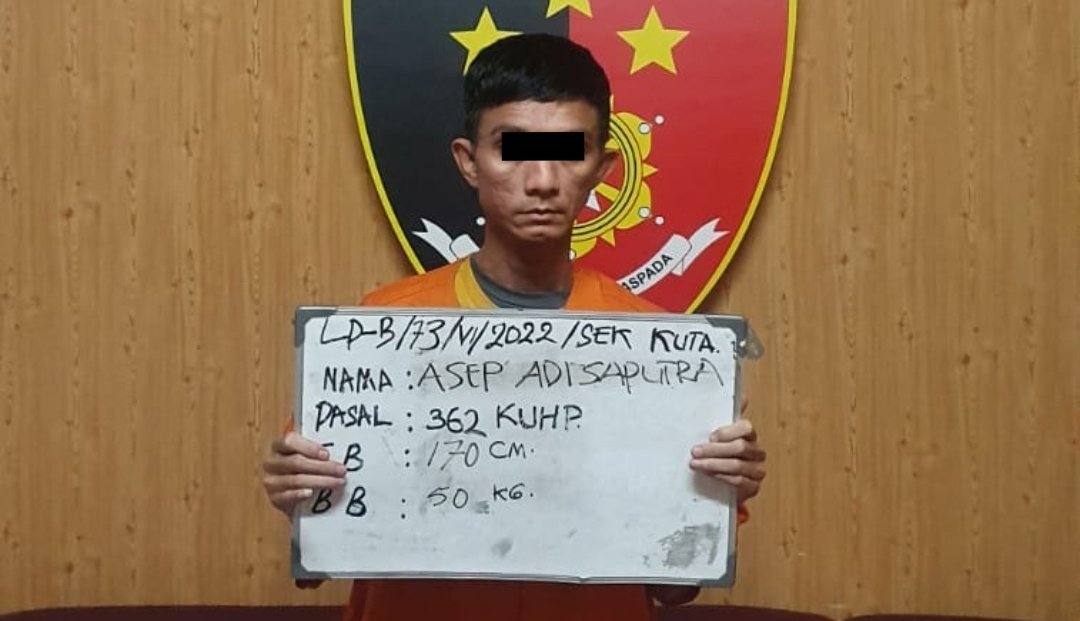 ASPADA
LP-B/73/VI/2022/SEK KUTA.
NAMA : ASEP ADI SAPUTRA
PASAL : 362 KUHP.
B : 170 CM.
BB : 50 KG.